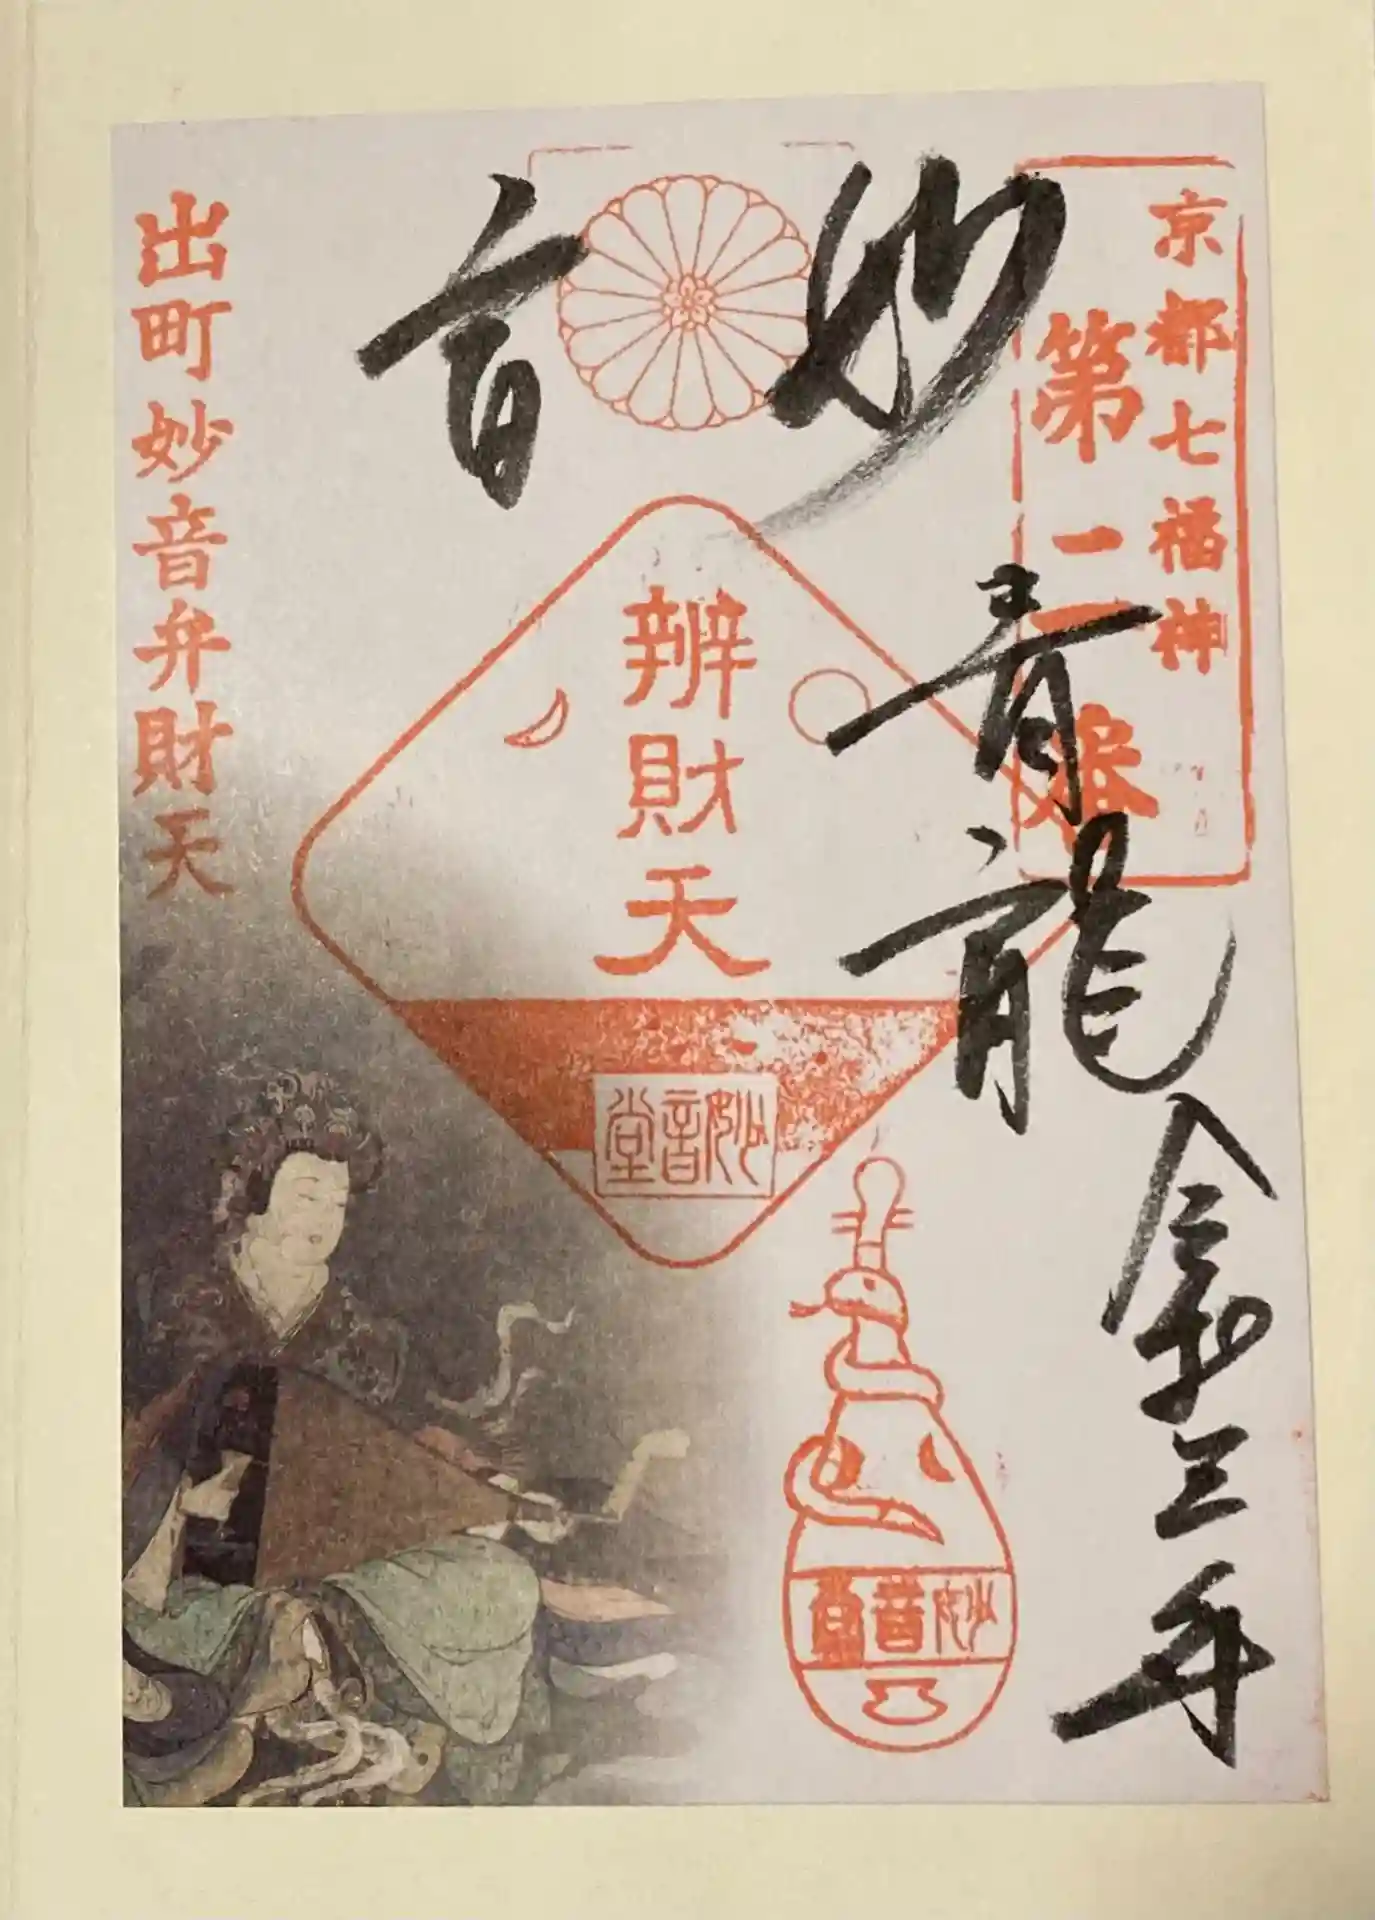 京都七福神
第二番
妙音
青龍
令和三年
辨財天
妙音堂
妙音堂
出町妙音弁財天